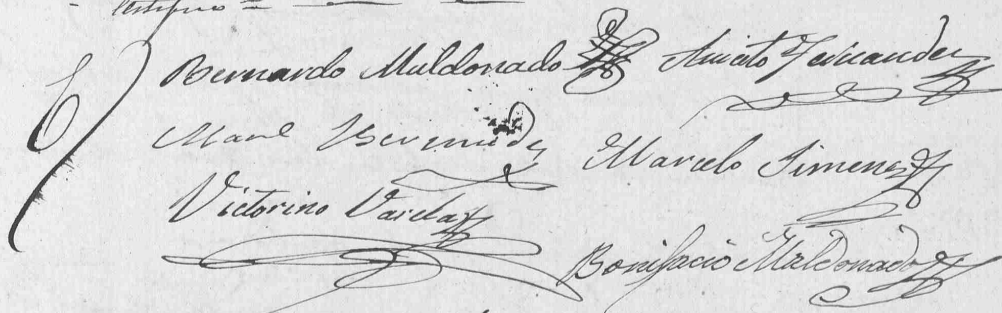 Bernardo Maldonado
Fernandez
Manl Bermudez
Marcelo Jimenez
Victorino Varela
Bonifacio Maldonado